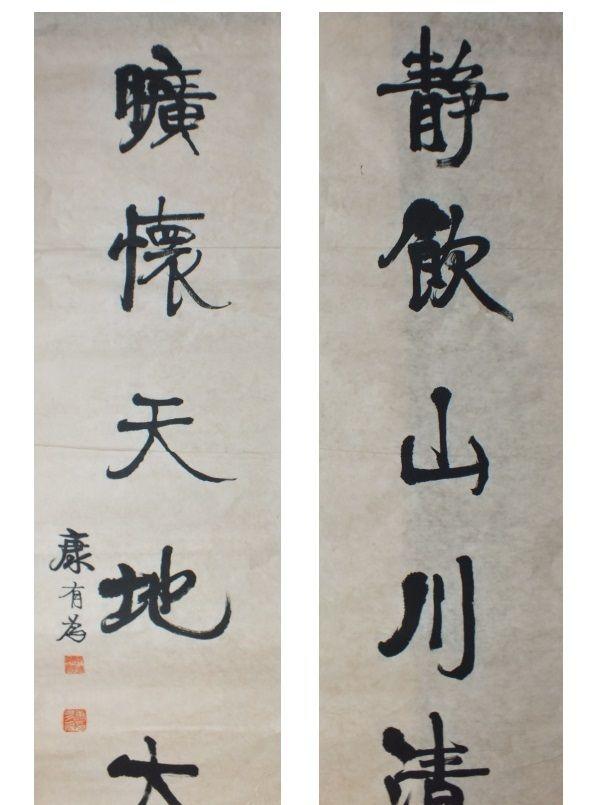 静飲山川清
曠懷天地大
康有為